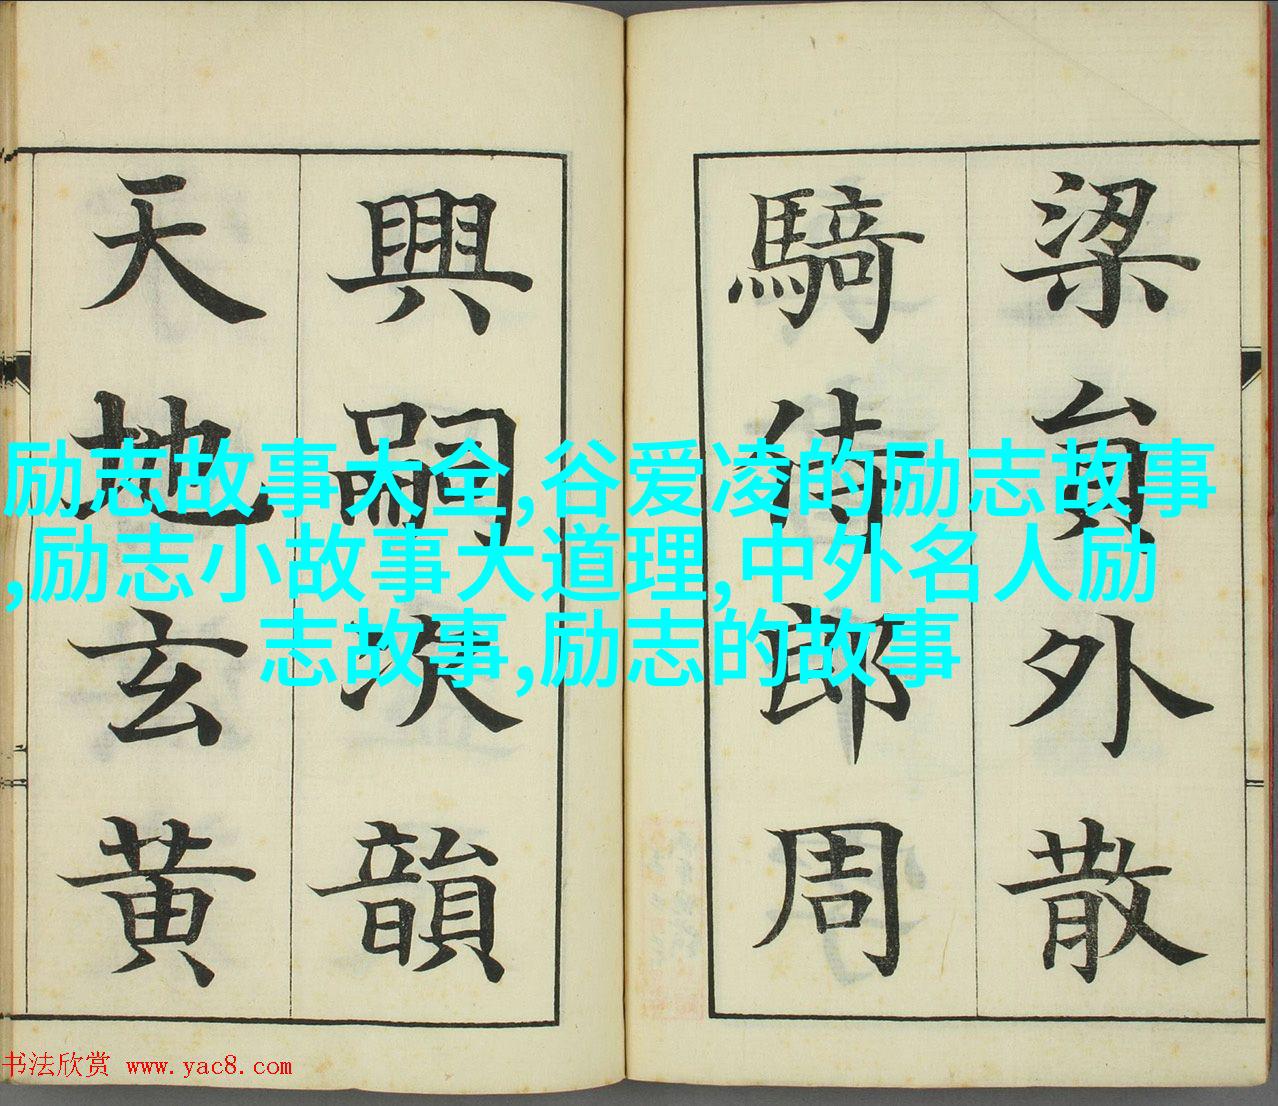 梁員外散
騎侍郎周
興嗣次韻
天地玄黄
励志故事大全,谷爱凌的励志故事
,励志小故事大道理,中外名人励
志故事,励志的故事
书法欣赏 www.yac8.com